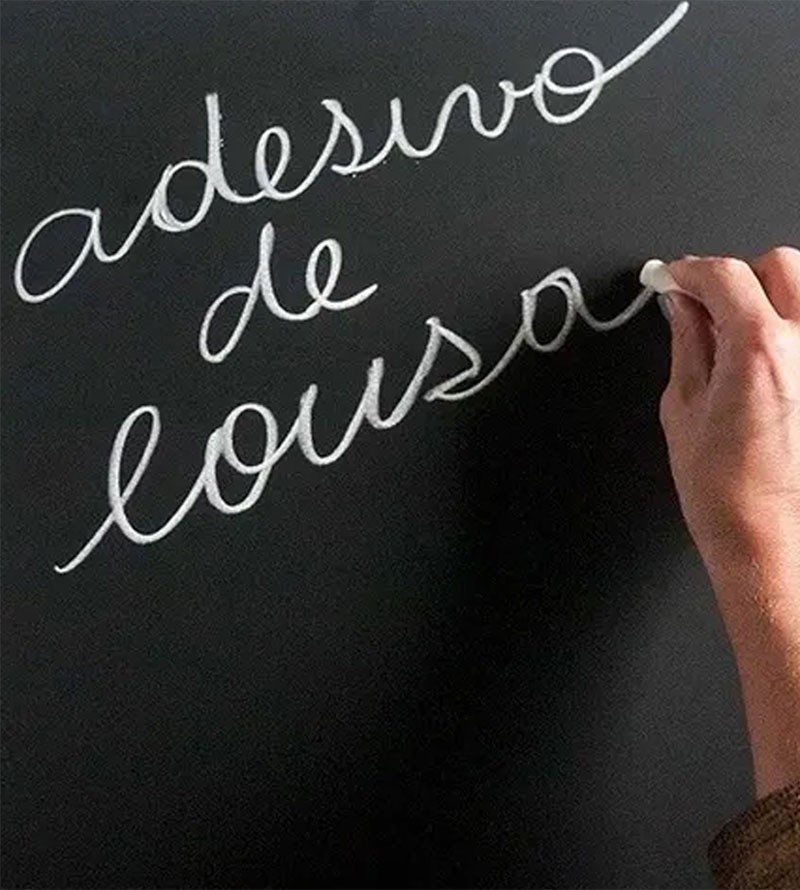 adesivo
de
lousa